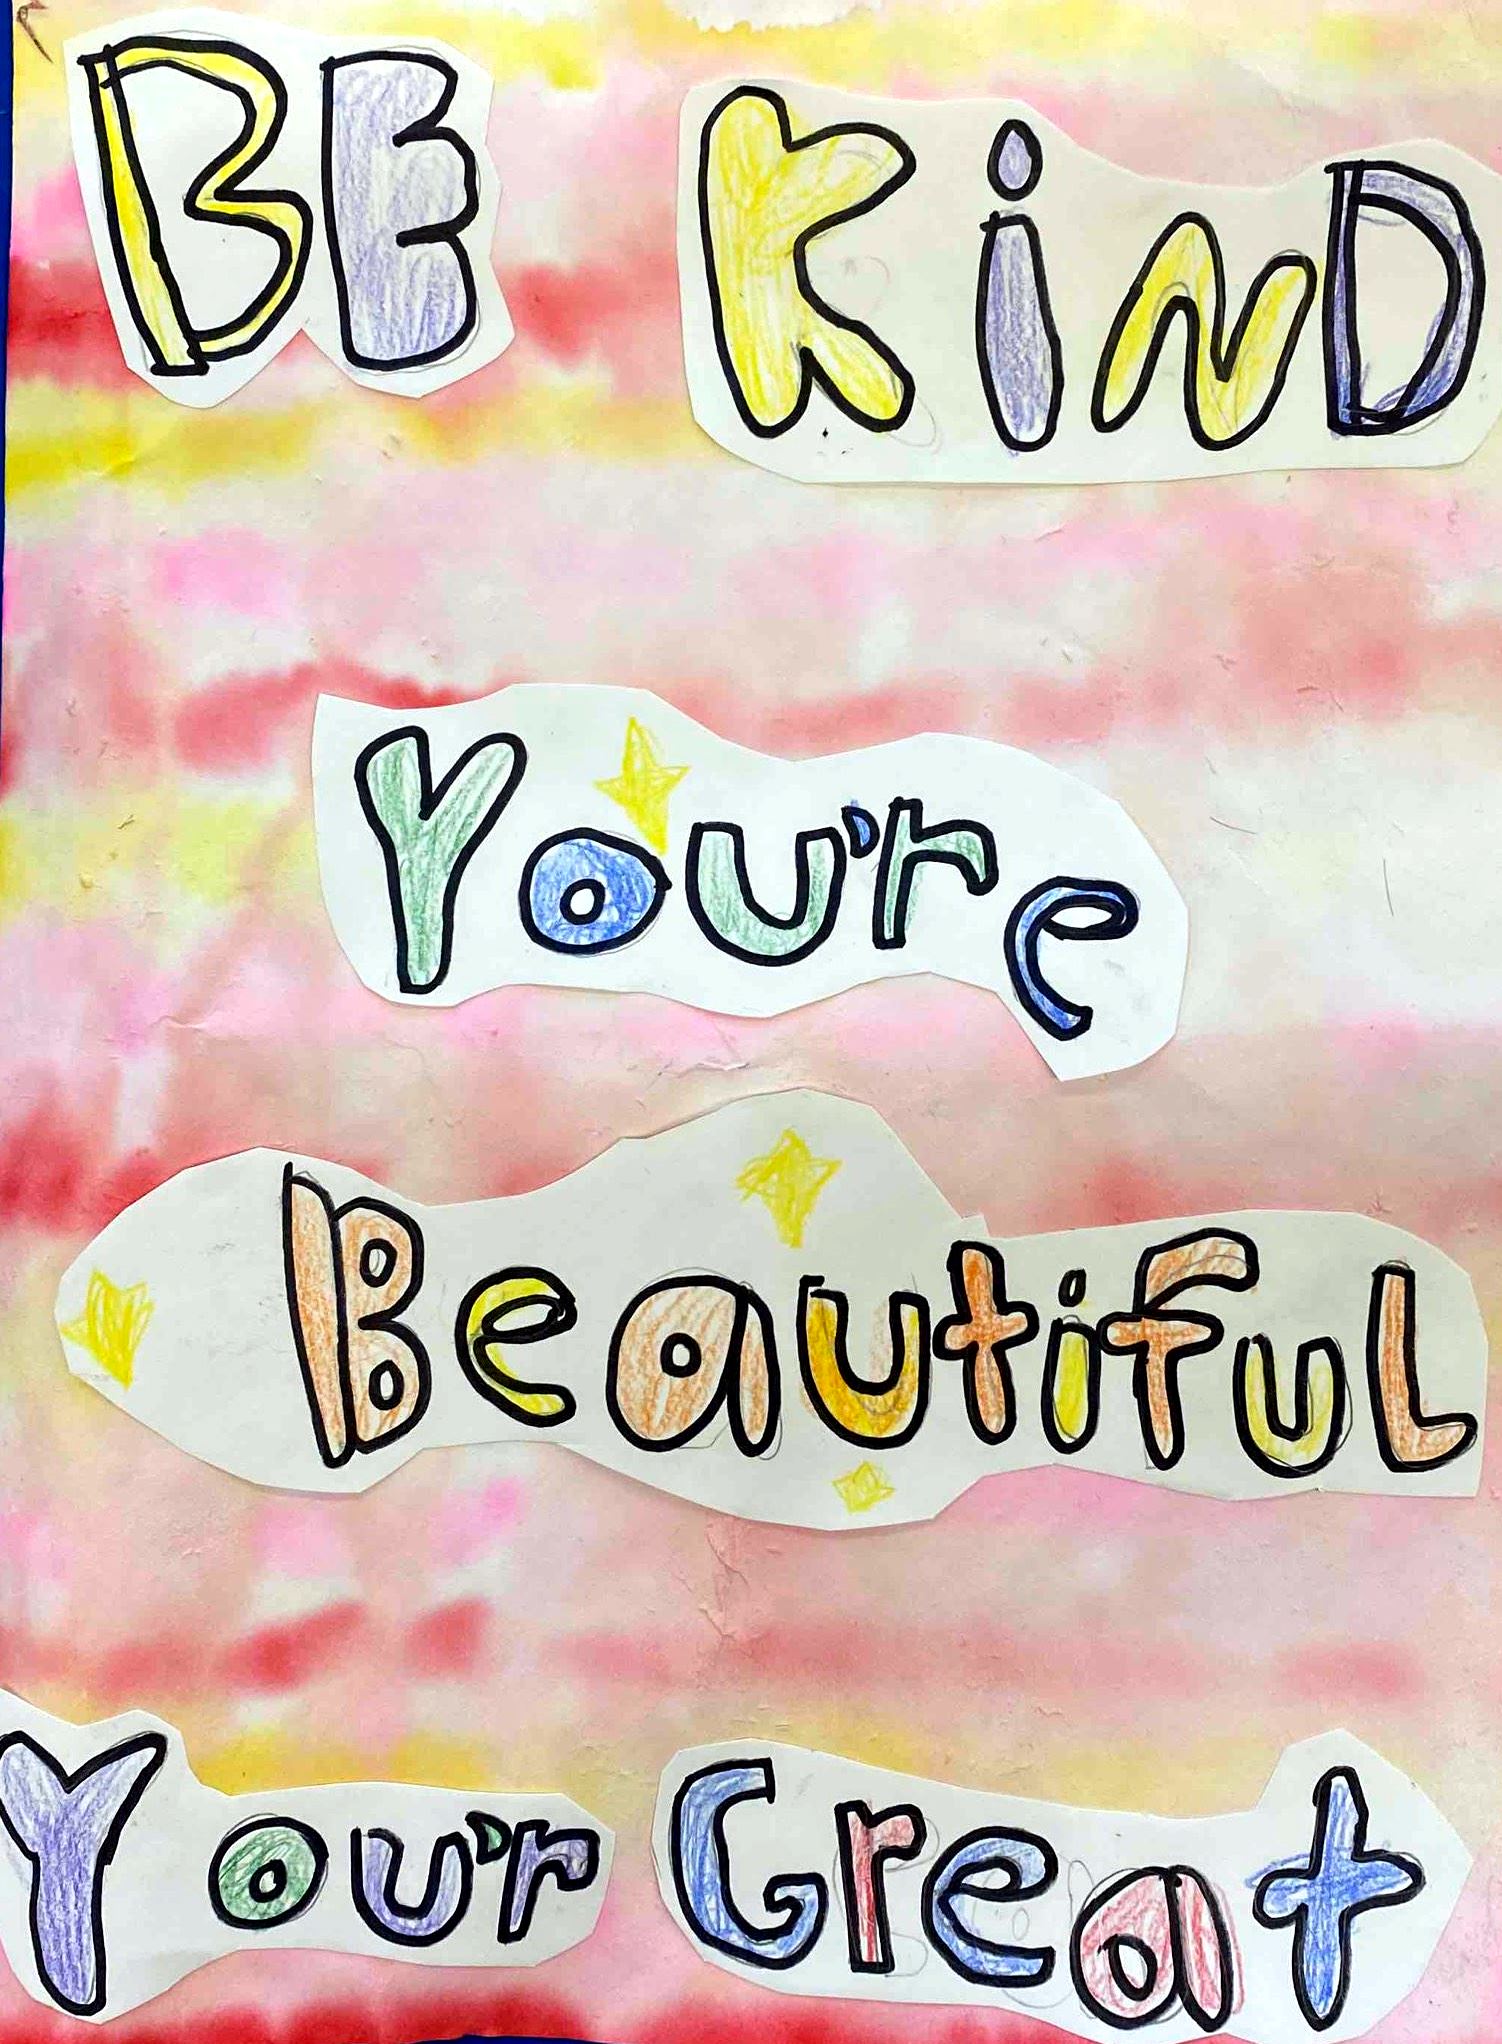 BE KiND
You're
Beautiful
You'r Great